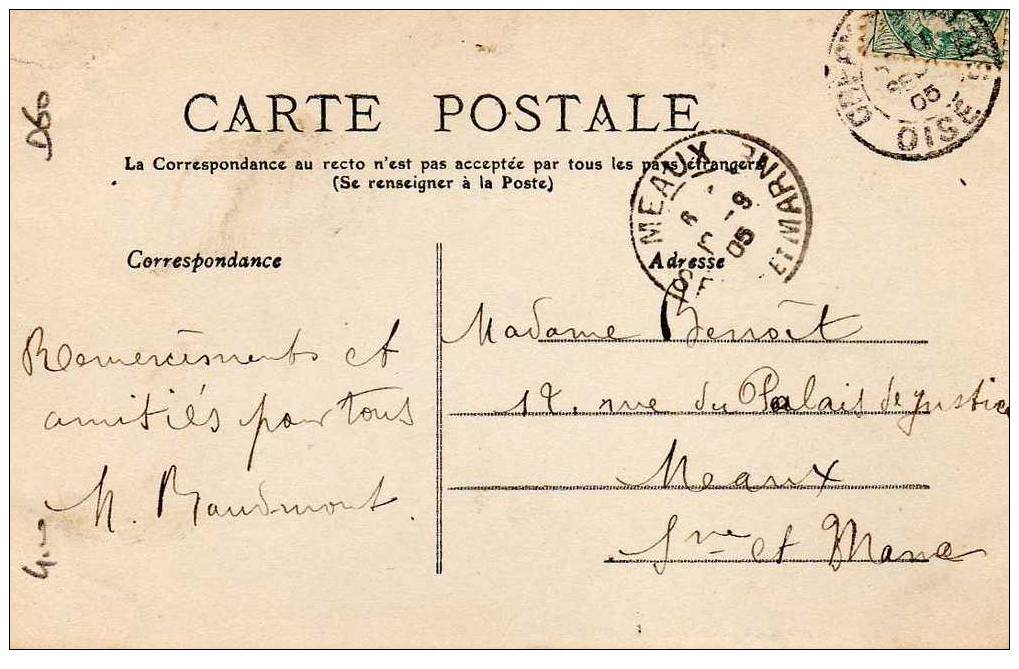 D60
CARTE POSTALE
La Correspondance au recto n'est pas acceptée par tous les pays étrangers
(Se renseigner à la Poste)
MEAUX
ET MARNE
6 - 9
05
OIS
05
Correspondance
Adresse
Remerciements et
amitiés pour tous
M. Baudmont.
Madame Benoît
12. rue du Palais de justice
Meaux
Sne et Marne